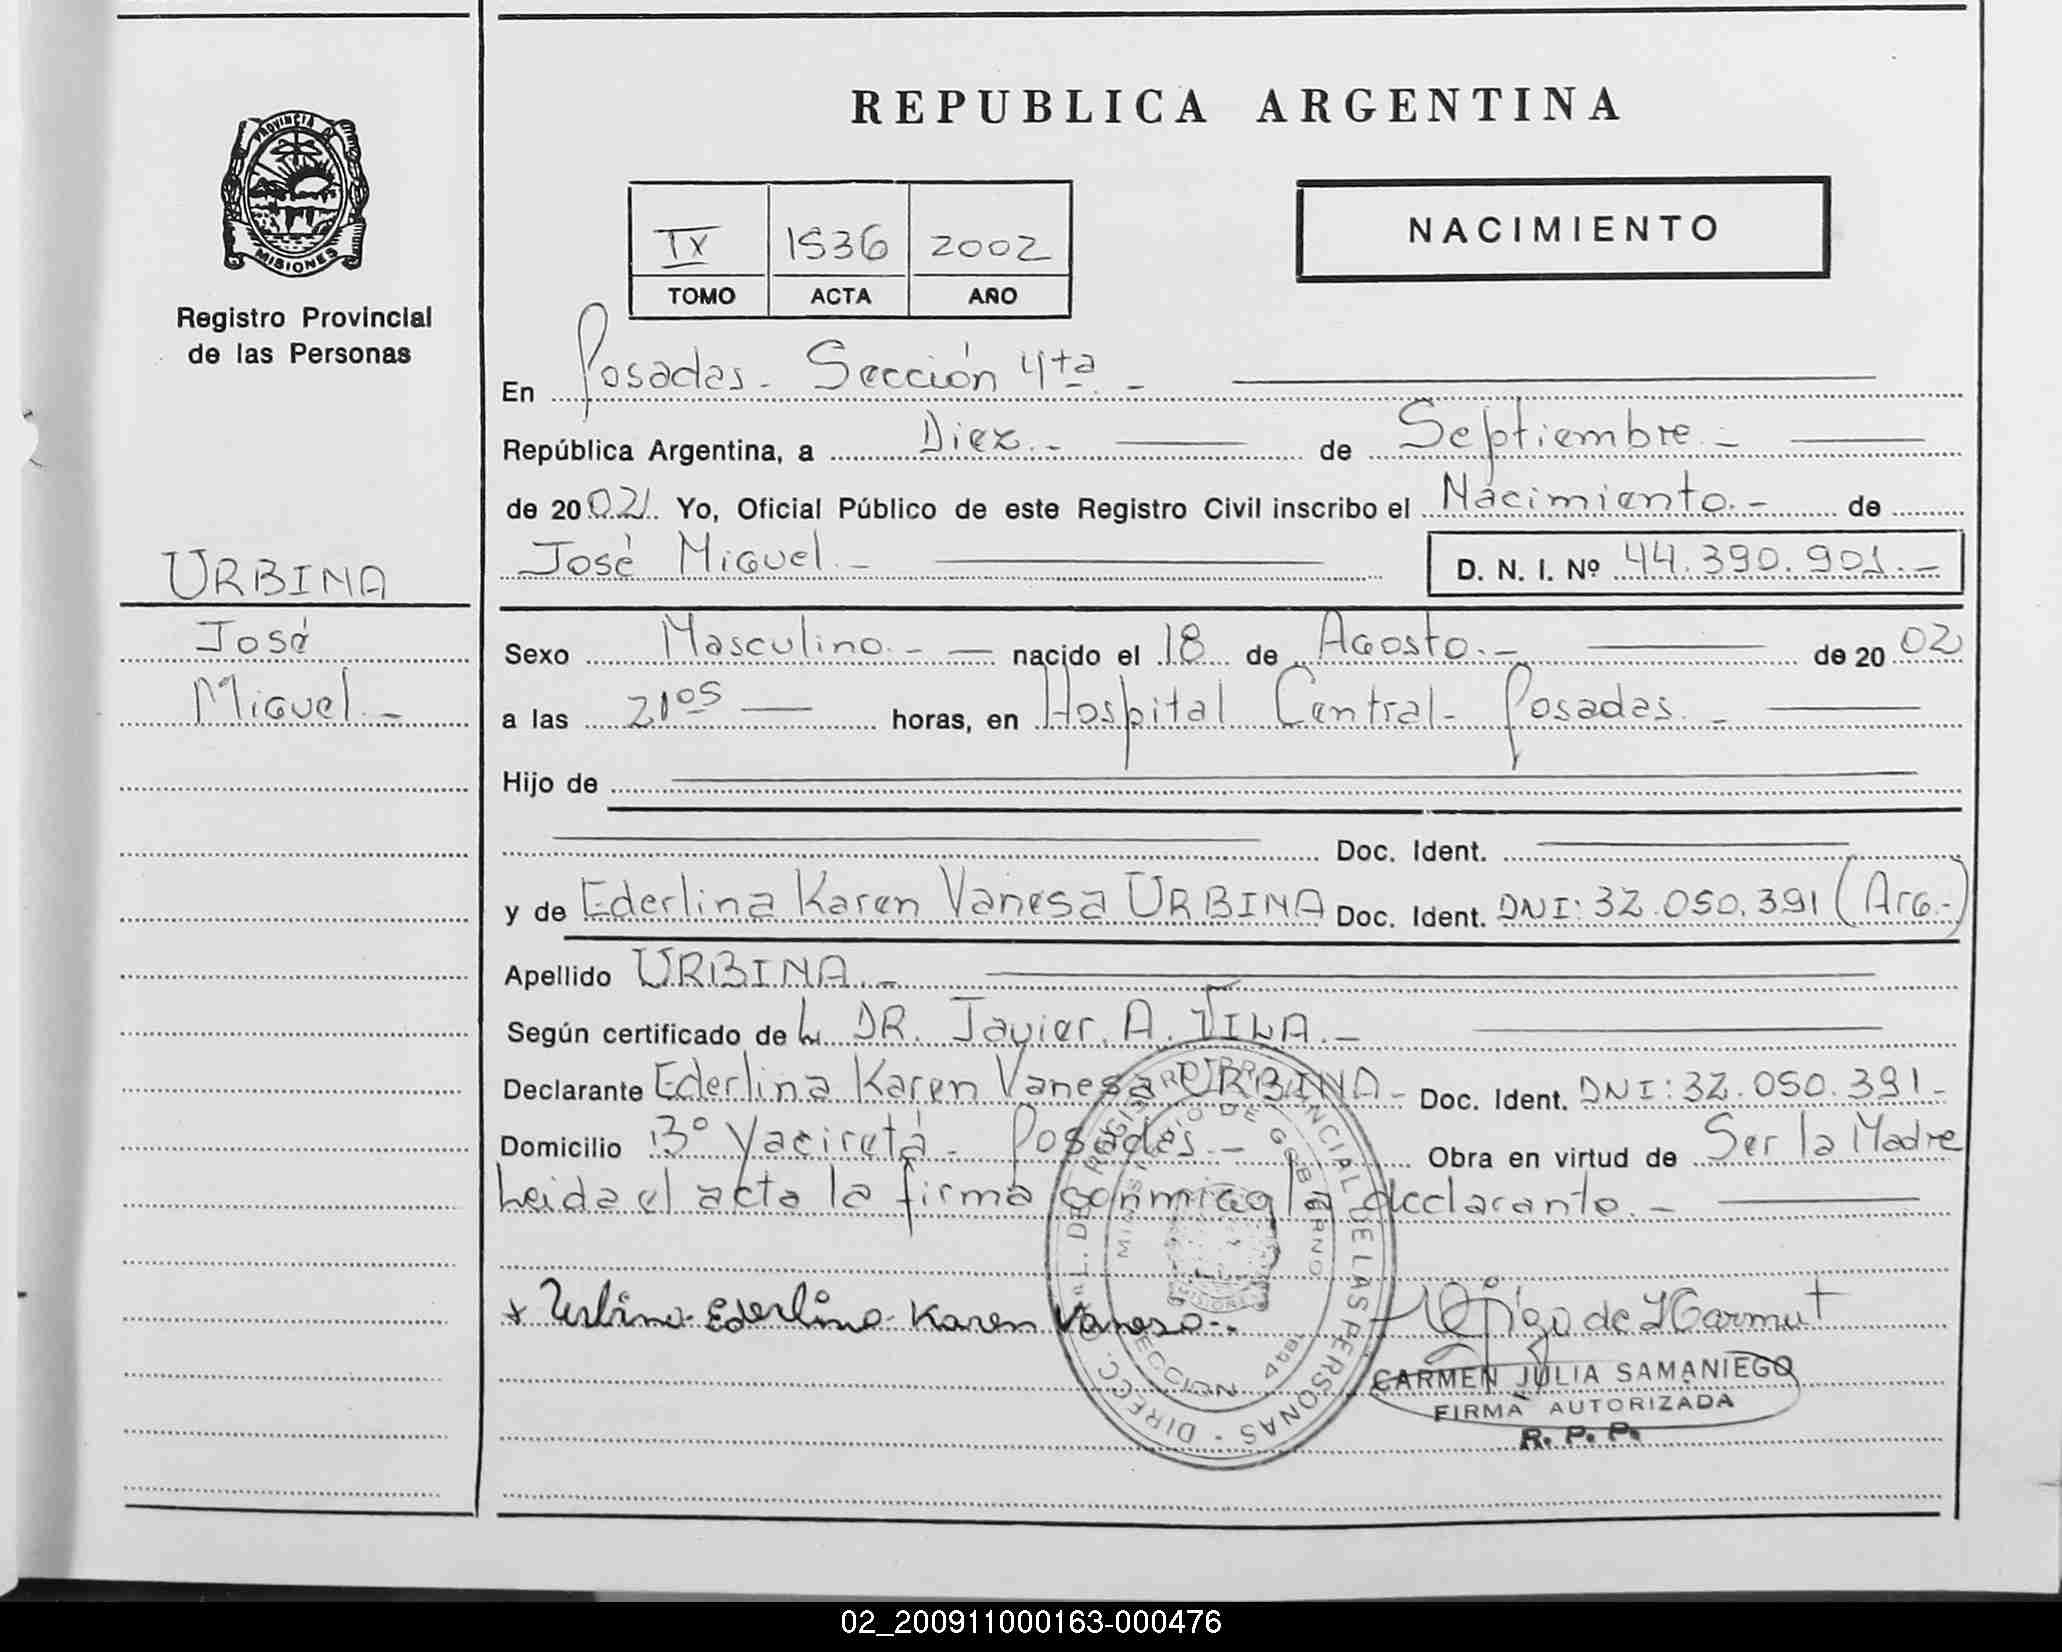 REPUBLICA ARGENTINA
PROVINCIA DE
MISIONES
Registro Provincial
de las Personas
IX 1536 2002
TOMO ACTA AÑO
NACIMIENTO
En Posadas - Sección 4ta. -
República Argentina, a Diez.- de Septiembre.-
de 2002. Yo, Oficial Público de este Registro Civil inscribo el Nacimiento.- de
José Miguel.- D. N. I. Nº 44.390.901.-
URBINA
José
Miguel.-
Sexo Masculino.- nacido el 18 de Agosto.- de 2002
a las 21 05 horas, en Hospital Central - Posadas.-
Hijo de
Doc. Ident.
y de Ederlina Karen Vanesa URBINA Doc. Ident. DNI: 32.050.391 (Arg.-)
Apellido URBINA.-
Según certificado de DR. Javier. A. VILA.-
Declarante Ederlina Karen Vanesa URBINA- Doc. Ident. DNI: 32.050.391-
Domicilio Bº Yaciretá - Posadas.- Obra en virtud de Ser la Madre
Leida el acta la firma conmigo la declarante.-
x Urbina Ederlina Karen Vanesa.-
DIRECC. GRAL. DEL REGISTRO PROVINCIAL DE LAS PERSONAS
MINISTERIO DE GOBIERNO
MISIONES
SECCION 4ta
CARMEN JULIA SAMANIEGO
FIRMA AUTORIZADA
R. P. P.
02_200911000163-000476